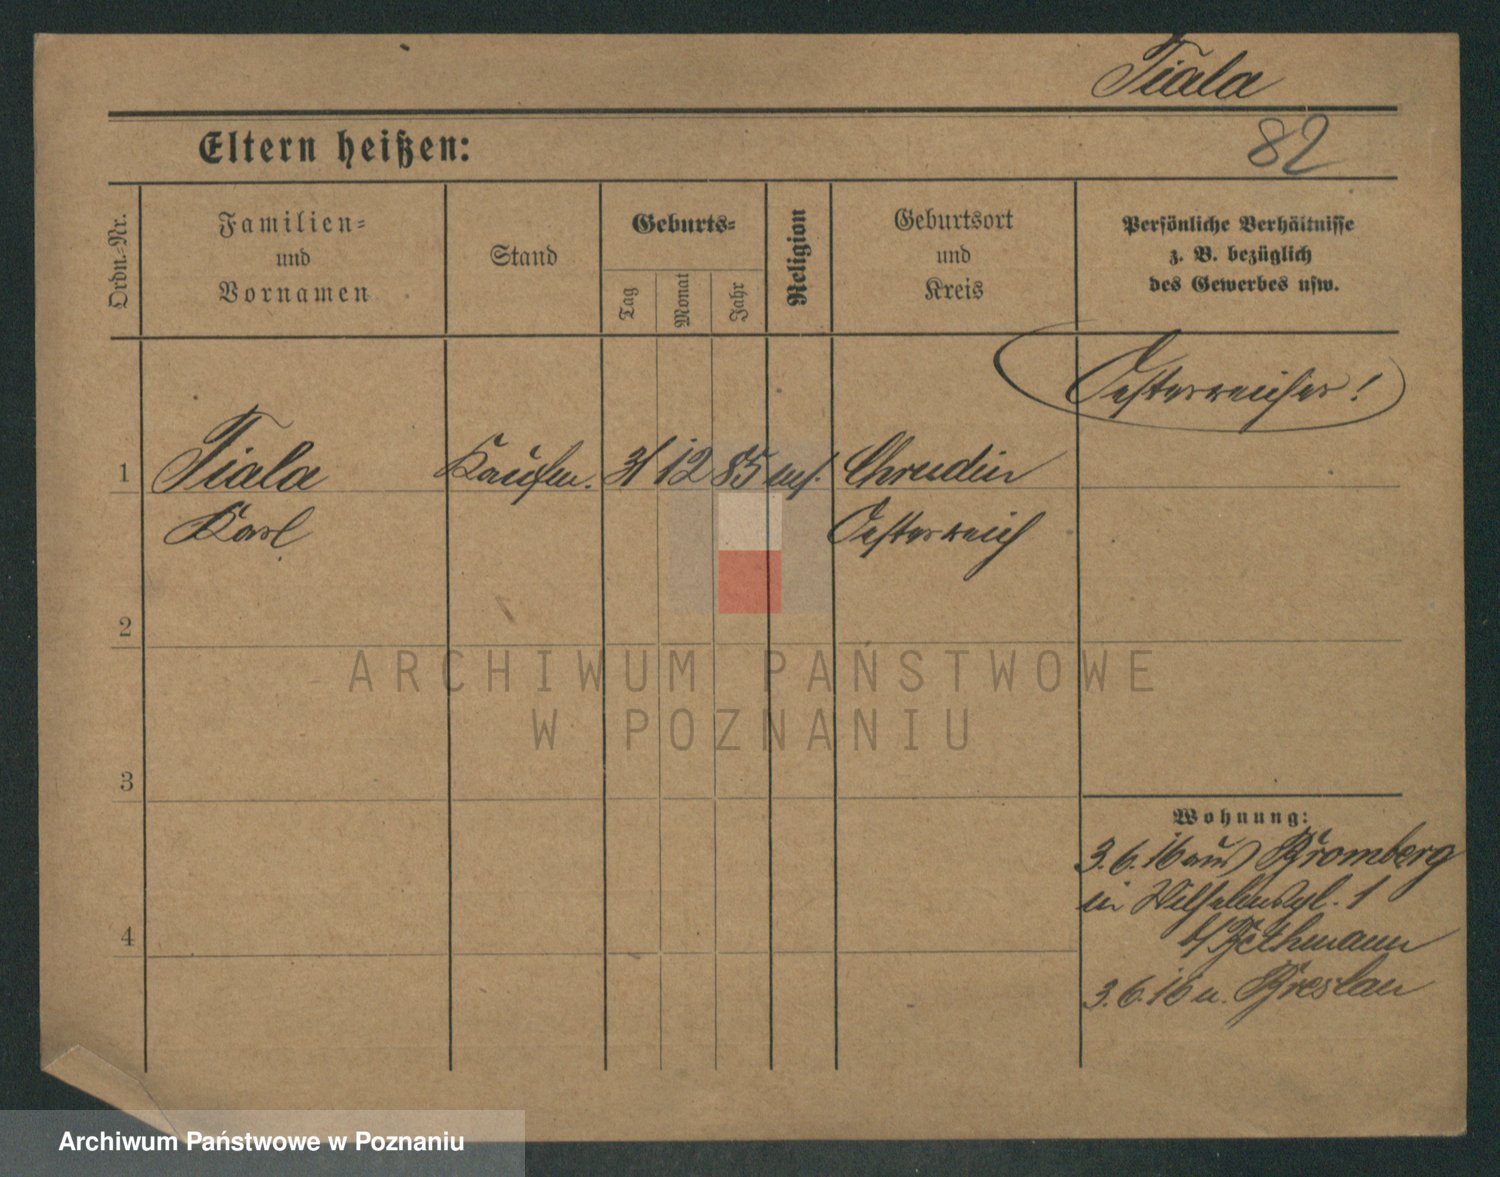 Fiala
82
Eltern heißen:
Ordn.-Nr.
Familien-
und
Vornamen
Stand
Geburts-
Tag
Monat
Jahr
Religion
Geburtsort
und
Kreis
Persönliche Verhältnisse
z. B. bezüglich
des Gewerbes usw.
Oesterreicher!
1 Fiala Kaufm. 31 12 85 Chrudin
Karl Oesterreich
2
3
4
Wohnung:
3.6.16 aus Bromberg
in Wilhelmspl. 1
b/ Bethmann
3.6.16 n. Breslau
ARCHIWUM PAŃSTWOWE
W POZNANIU
Archiwum Państwowe w Poznaniu